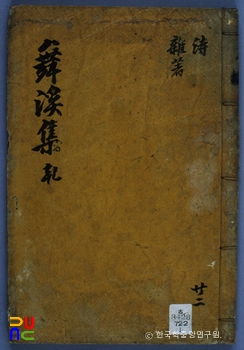 詩
雜著
舞溪集
廿二
722
© 한국학중앙연구원